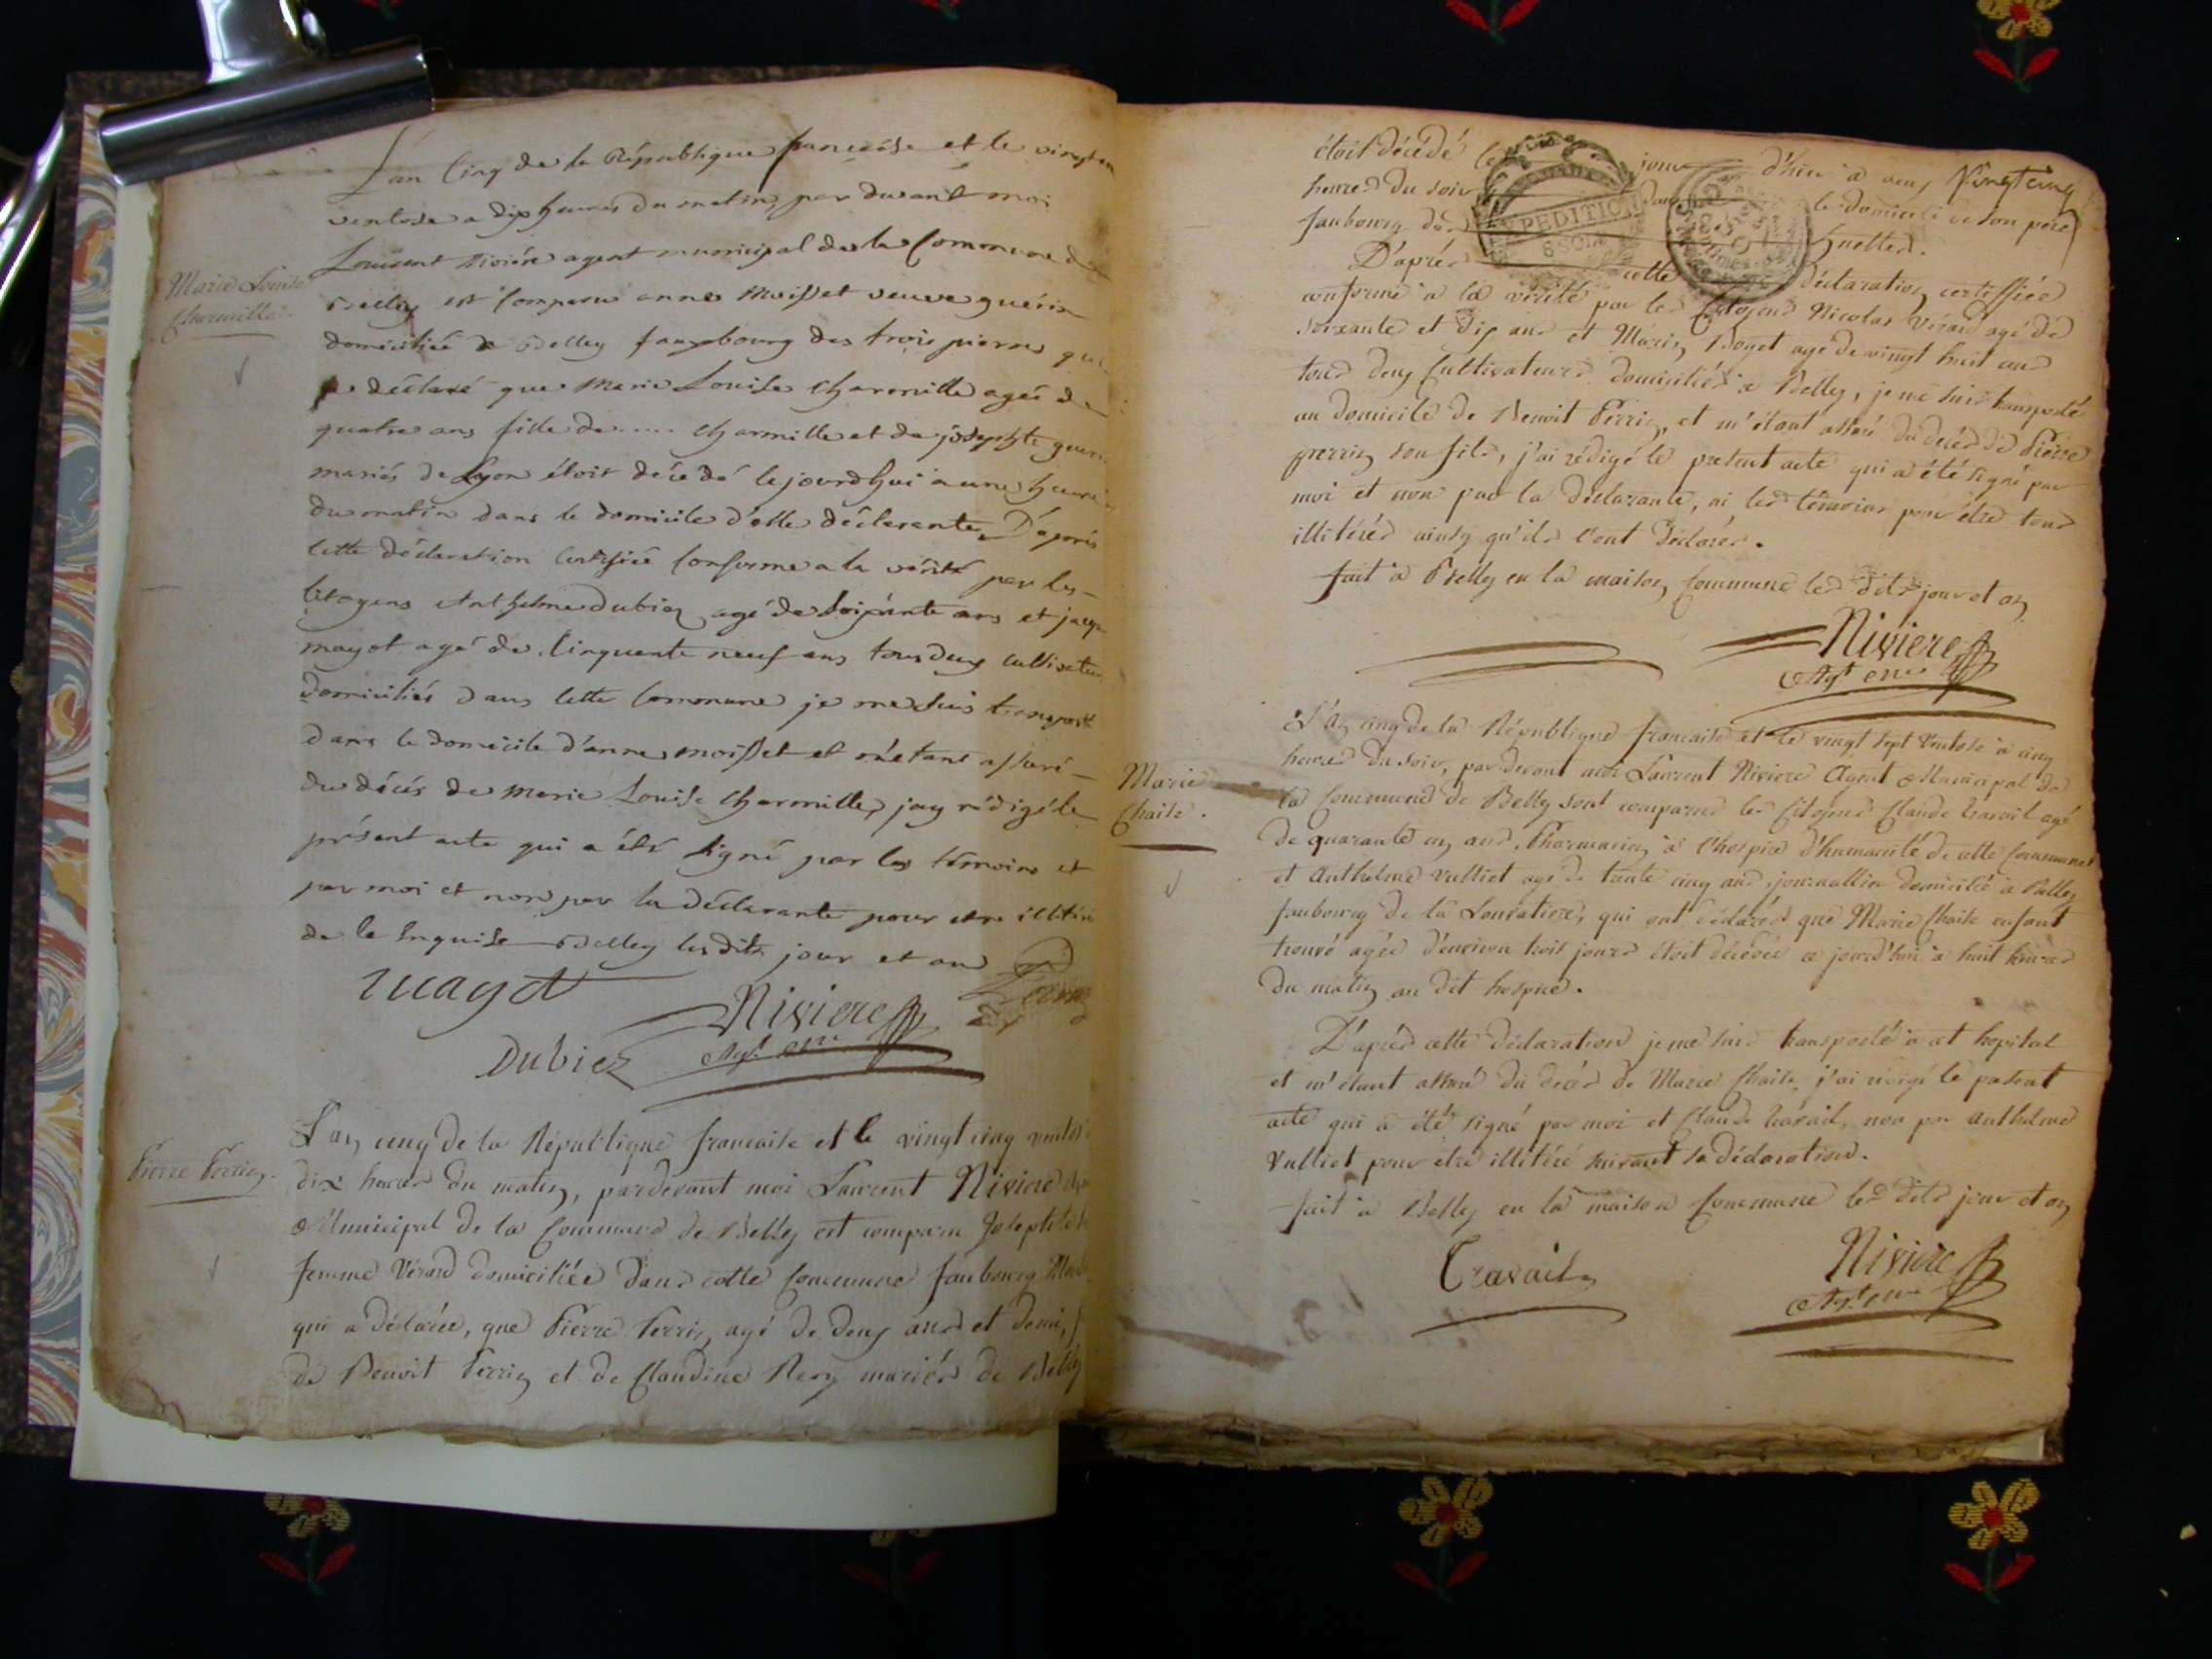 Marie Louise
Charmille.
L'an Cinq de la République francoise et le vingt
ventose a dix heures du matin par devant moi
Laurent Rivière agent municipal de la Commune de
Belley est Comparu anne Moisset veuve guérin
domiciliée a Belley fauxbourg des trois pierres qui
a déclaré que Marie Louise Charmille agée de
quatre ans fille de ..... Charmille et de josephte guerin
mariés de Lyon étoit décédé le jourdhui a une heure
du matin dans le domicile d'elle déclarante D'après
Cette déclaration Certifiée Conforme a la vérité par les
Citoyens Anthelme Dubiez agé de Soixante ans et
mayot agé de Cinquante neuf ans tous deux Cultivateurs
Domiciliés dans Cette Commune je me suis transporté
dans le domicile d'anne moisset et m'étant assuré
du décés de Marie Louise Charmille, jay rédigé le
présent acte qui a été signé par les témoins et
par moi et non par la déclarante pour etre illitéré
de le enquise Belley les dits jour et an
mayot
Riviere
Dubiez
Agt mal
Pierre Perrin.
L'an cinq de la République francaise et le vingt cinq ventose
dix heures du matin, pardevant moi Laurent Riviere
Municipal de la Commune de Belley est comparu Josephte
femme Vérard domiciliée dans cette Commune faubourg
qui a déclarée, que Pierre Perrin agé de deux ans et demi,
de Benoit Perrin et de Claudine Rey mariés de Belley
étoit décédé le jour d'hier à
heures du soir dans le domicile de son père
faubourg des huettes.
D'après cette déclaration certiffiée
conforme à la vérité par les Citoyens Nicolas Vérard agé de
soixante et dix ans et Marin Bouget agé de vingt huit ans
tous deux Cultivateurs domiciliés à Belley, je me suis transporté
au domicile de Benoit Perrin, et m'étant assuré du décès de Pierre
perrin son fils, j'ai rédigé le present acte qui a été signé par
moi et non par la déclarante, ni les témoins pour être tous
illitérés ainsy qu'ils l'ont déclarés.
fait à Belley en la maison Commune les dits jour et an
Riviere
Agt mal
EXPEDITION
8 SOLS
Marie
Chaise.
L'an cinq de la République francaise et le vingt sept Ventose à cinq
heures du soir, par devant moi Laurent Riviere Agent Municipal de
la Commune de Belley sont comparus les Citoyens Claude travail agé
de quarante cinq ans, Pharmacien à l'hospice d'humanité de cette Commune
et Anthelme Vulliet agé de trente cinq ans, journallier domicilié à Belley
faubourg de la Louvatiere, qui ont déclarés que Marie Chaise enfant
trouvé agée d'environ trois jours étoit décédée ce jourd'hui à huit heures
du matin au dit hospice.
D'après cette déclaration je me suis transporté à cet hopital
et m'étant assuré du décès de Marie Chaise, j'ai rédigé le présent
acte qui a été signé par moi et Claude travail, non par Anthelme
Vulliet pour être illitéré suivant sa déclaration.
fait à Belley en la maison Commune les dits jour et an
Travail
Riviere
Agt mal